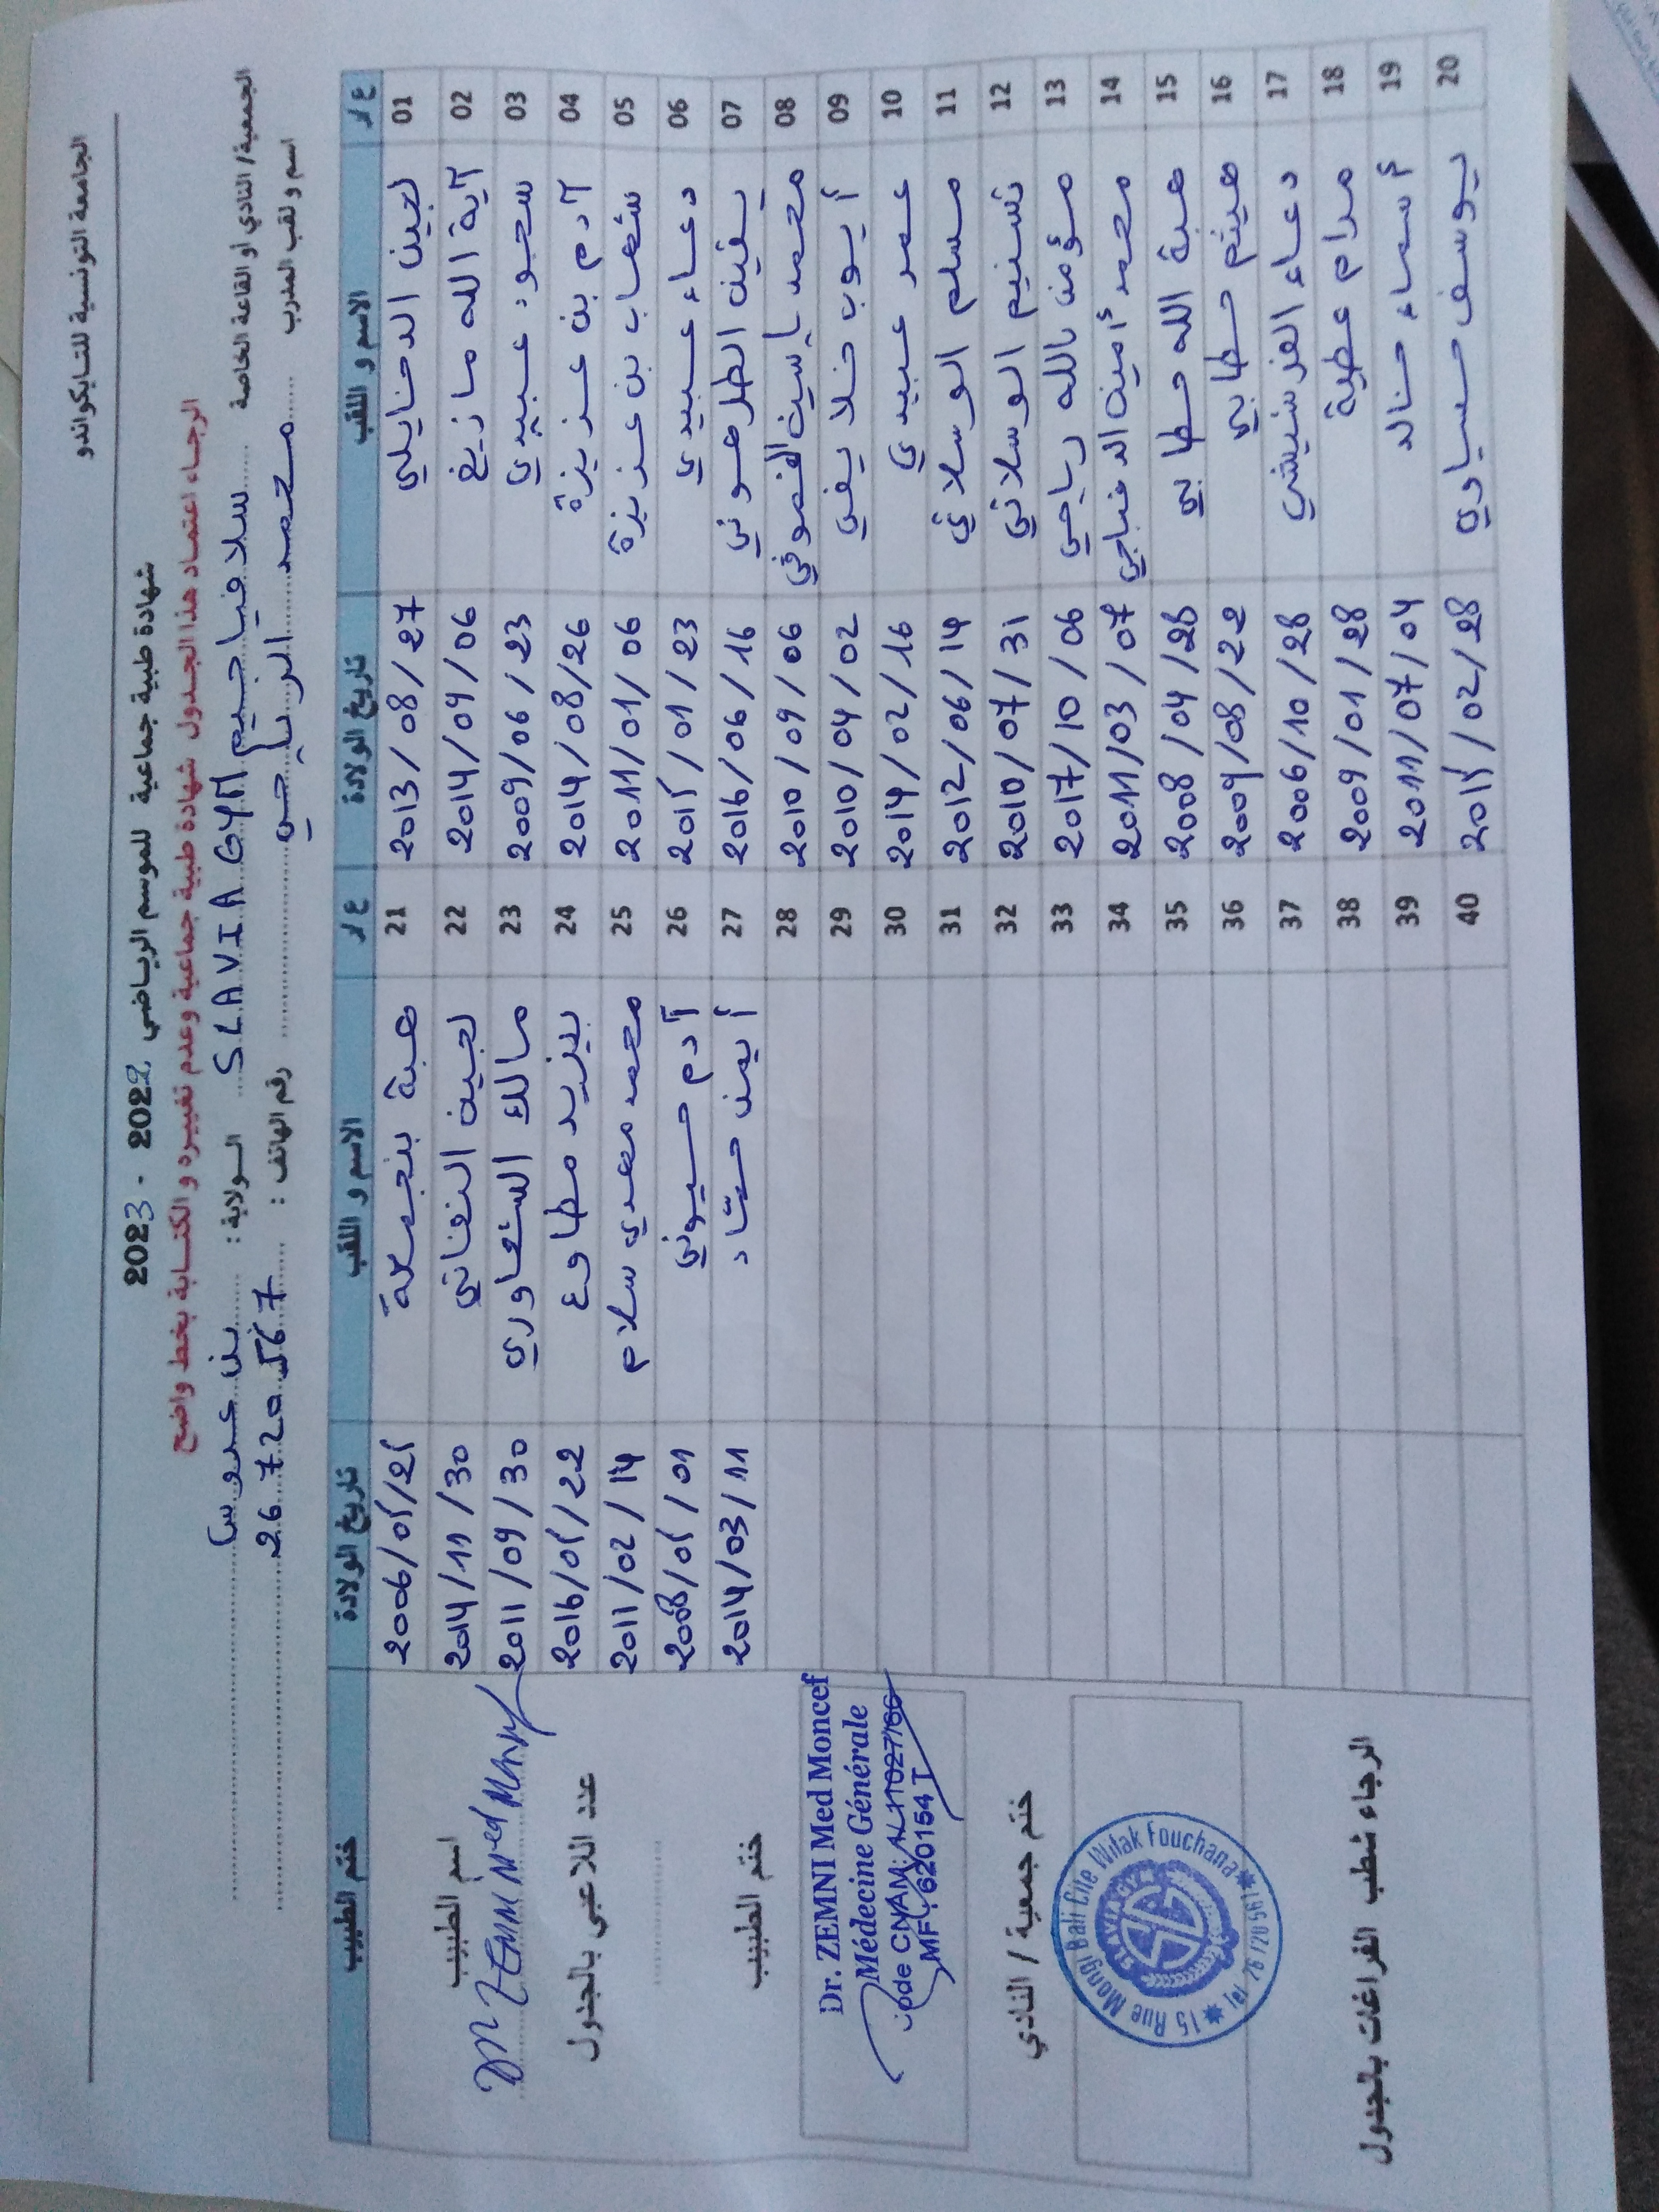 الجامعة التونسية للتايكواندو
شهادة طبية جماعية للموسم الرياضي 2022 - 2023
الرجاء اعتماد هذا الجدول شهادة طبية جماعية وعدم تغييره و الكتابة بخط واضح
الجمعية/ النادي او القاعة الخاصة سلافيا جيم SLAVIA GYM الولاية : بن عروس
اسم و لقب المدرب محمد الرياحي رقم الهاتف : 26 720 567
ع/ر الاسم و اللقب تاريخ الولادة ع/ر الاسم و اللقب تاريخ الولادة ختم الطبيب
01 لجين الدخايلي 2013/08/27 21 هبة بنجمعة 2006/05/25
02 آية الله مازيغ 2014/09/06 22 لجين النفاتي 2014/11/30
03 سجود عبيدي 2009/06/23 23 مالك السعاوري 2011/09/30
04 آدم بن عزيزة 2014/08/26 24 يزيد مطاوع 2016/05/22
05 شهاب بن عزيزة 2011/01/06 25 محمد مهدي سلام 2011/02/14
06 دعاء عبيدي 2015/01/23 26 آدم حسيوني 2008/05/01
07 يقين الطرهوني 2016/06/16 27 أيمن حشاد 2014/03/11
08 محمد ياسين 2010/09/06 28
09 أيوب خلايفي 2010/04/02 29
10 عمر عبيدي 2014/02/16 30
11 مسلم الوسلاتي 2012/06/14 31
12 تسنيم الوسلاتي 2010/07/31 32
13 مؤمن بالله رياحي 2017/10/06 33
14 محمد أمين الدغباجي 2011/03/07 34
15 هبة الله حطابي 2008/04/28 35
16 هيثم حطابي 2009/08/22 36
17 دعاء الفرشيشي 2006/10/28 37
18 مرام عطية 2009/01/28 38
19 أسماء خالد 2011/07/04 39
20 يوسف حسياوي 2015/02/28 40
اسم الطبيب
Dr Zemni Med Moncef
عدد اللاعبي بالجدول
ختم الطبيب
Dr. ZEMNI Med Moncef
Médecine Générale
Code CNAM:
MF: 620154 T
ختم جمعية / النادي
15 Rue Mongi Bali Cite Wifak Fouchana
Tel: 26 720 567
الرجاء شطب الفراغات بالجدول